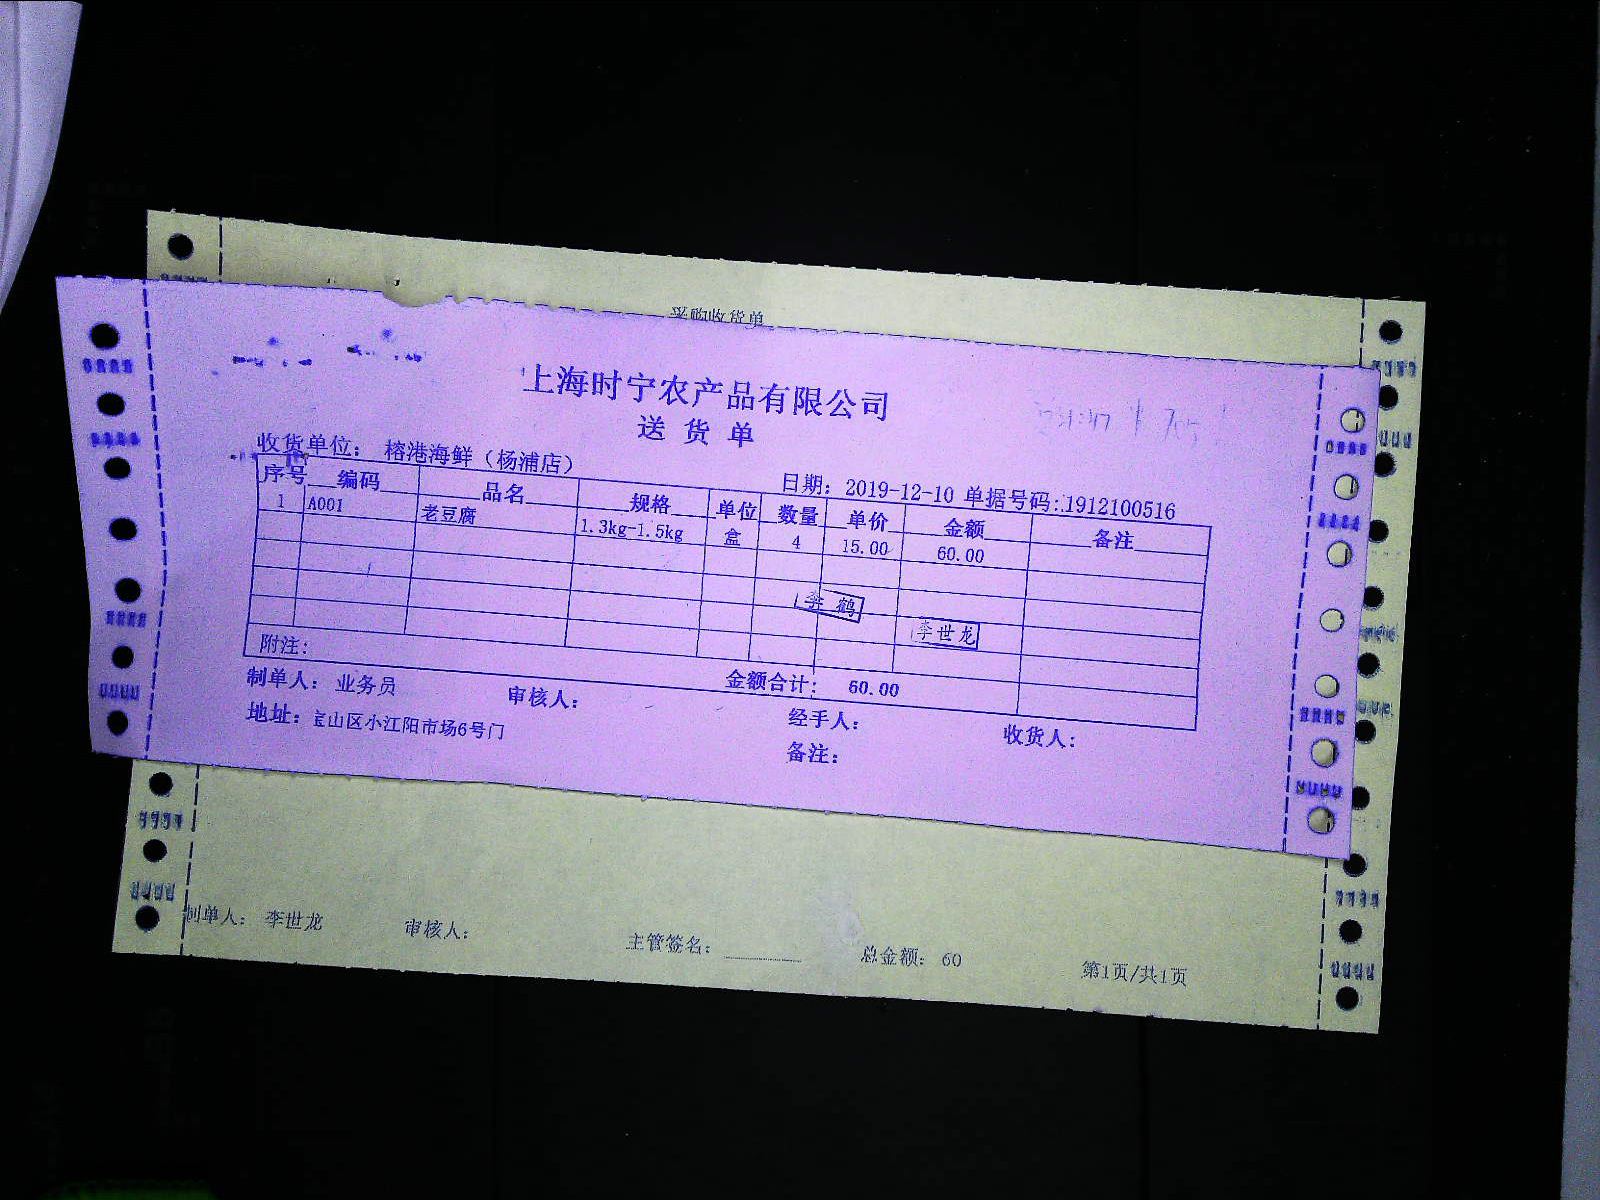 采购收货单
上海时宁农产品有限公司
送货单
收货单位： 榕港海鲜（杨浦店）
日期：2019-12-10 单据号码:1912100516
序号 编码 品名 规格 单位 数量 单价 金额 备注
1 A001 老豆腐 1.3kg-1.5kg 盒 4 15.00 60.00
李鹤
李世龙
附注:
金额合计: 60.00
制单人: 业务员 审核人: 经手人: 收货人:
地址: 宝山区小江阳市场6号门
备注:
制单人: 李世龙 审核人: 主管签名: 总金额: 60 第1页/共1页